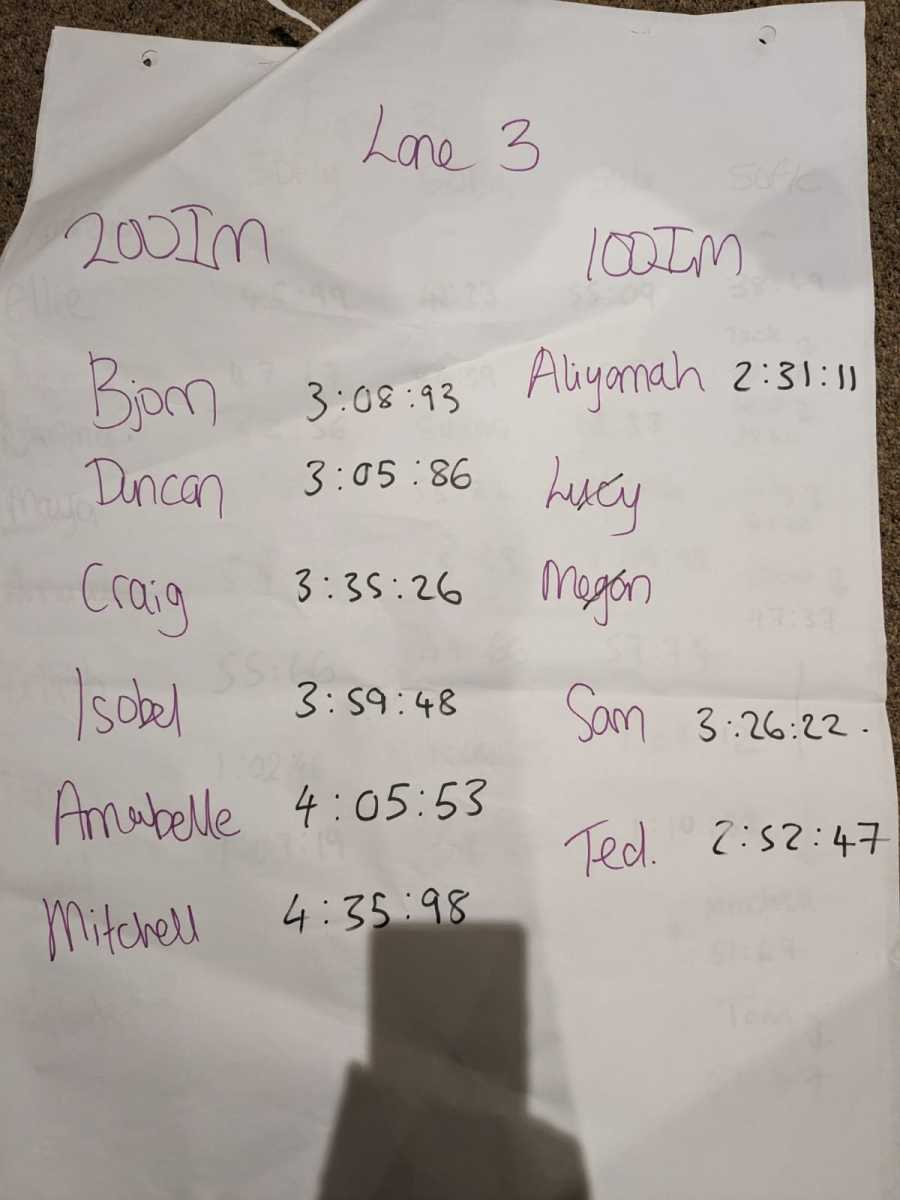 Lane 3
200IM
Bjorn 3:08:93
Duncan 3:05:86
Craig 3:35:26
Isobel 3:59:48
Annabelle 4:05:53
Mitchell 4:35:98
100IM
Aliyamah 2:31:11
Lucy
Megan
Sam 3:26:22.
Ted. 2:52:47